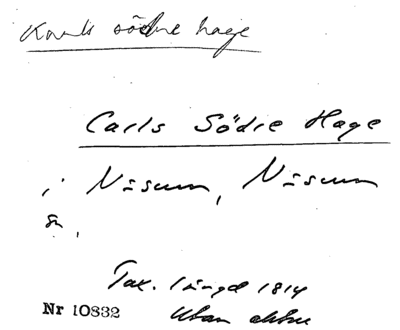 Karls södre hage
Carls Södre Hage
i Näsum, Näsum
sn,
Tax. längd 1814
Nr 10832 Utan åbo